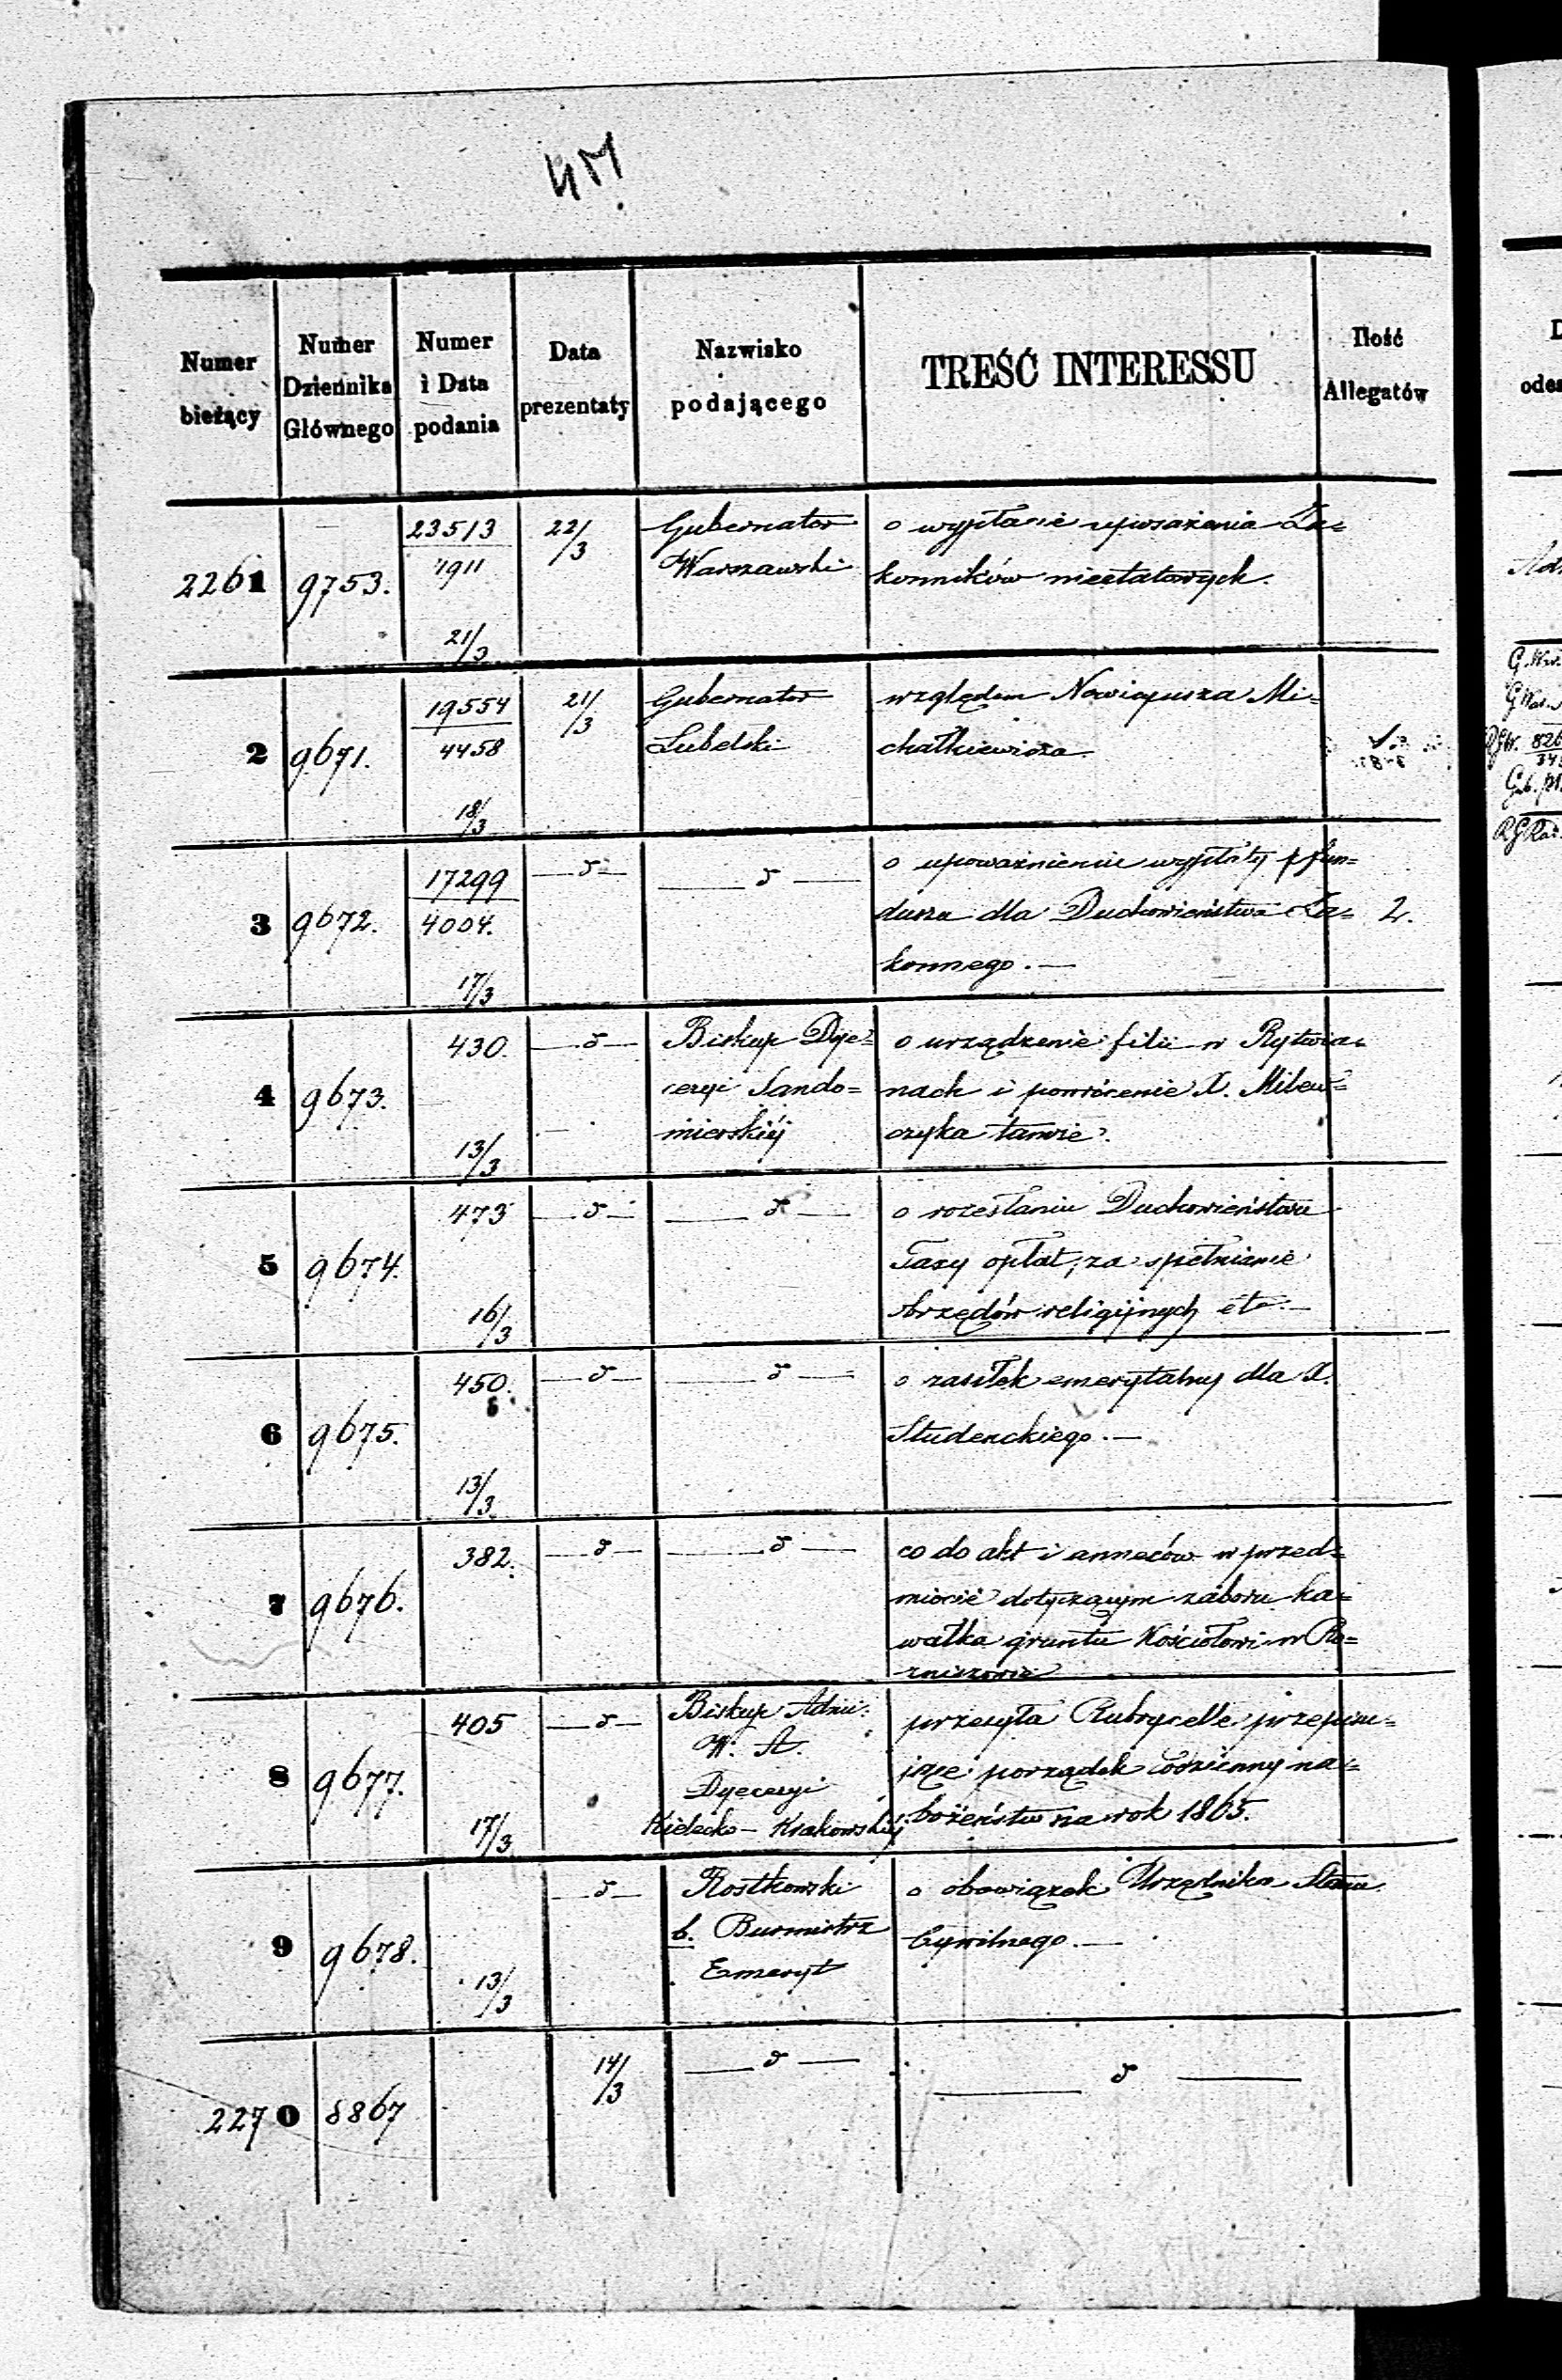 Numer bieżący
Numer Dziennika Głównego
Numer i Data podania
Data prezentaty
Nazwisko podającego
TREŚĆ INTERESSU
Ilość Allegatów
2261
9753.
23513
4911
21/3
22/3
Gubernator
Warszawski
o wypłacie uposażenia Za=
konników nieetatowych.
2
9671.
19554
4458
18/3
21/3
Gubernator
Lubelski
względem Nowicyusza Mi=
chałkiewicza
3
9672.
17299
4004.
17/3
— d —
— d —
o upoważnienie wypłaty fun=
duszu dla Duchowieństwa Za=
konnego. —
2.
4
9673.
430.
13/3
— d —
Biskup Dye=
cezyi Sando=
mierskiéj
o urządzenie filii w Rytwia=
nach i powrócenie X. Milew=
czyka tamże.
5
9674.
473
16/3
— d —
— d —
o rozesłaniu Duchowieństwu
Taxy opłat, za spełnianie
obrzędów religijnych etc. —
6
9675.
450.
13/3
— d —
— d —
o zasiłek emerytalny dla X.
Studenckiego. —
7
9676.
382.
— d —
— d —
co do akt i annexów w przed=
miocie dotyczącym zaboru ka=
wałka gruntu Kościołowi w Ro=
zniszewie
8
9677.
405
17/3
— d —
Biskup Adm:
W. A.
Dyecezyi
Kielecko - Krakowskiéj
przesyła Rubrycelle przepisu=
jące porządek codzienny na=
bożeństw na rok 1865.
9
9678.
13/3
— d —
Rostkowski
b. Burmistrz
Emeryt
o obowiązek Urzędnika Stanu
Cywilnego. —
2270
8867
14/3
— d —
— d —